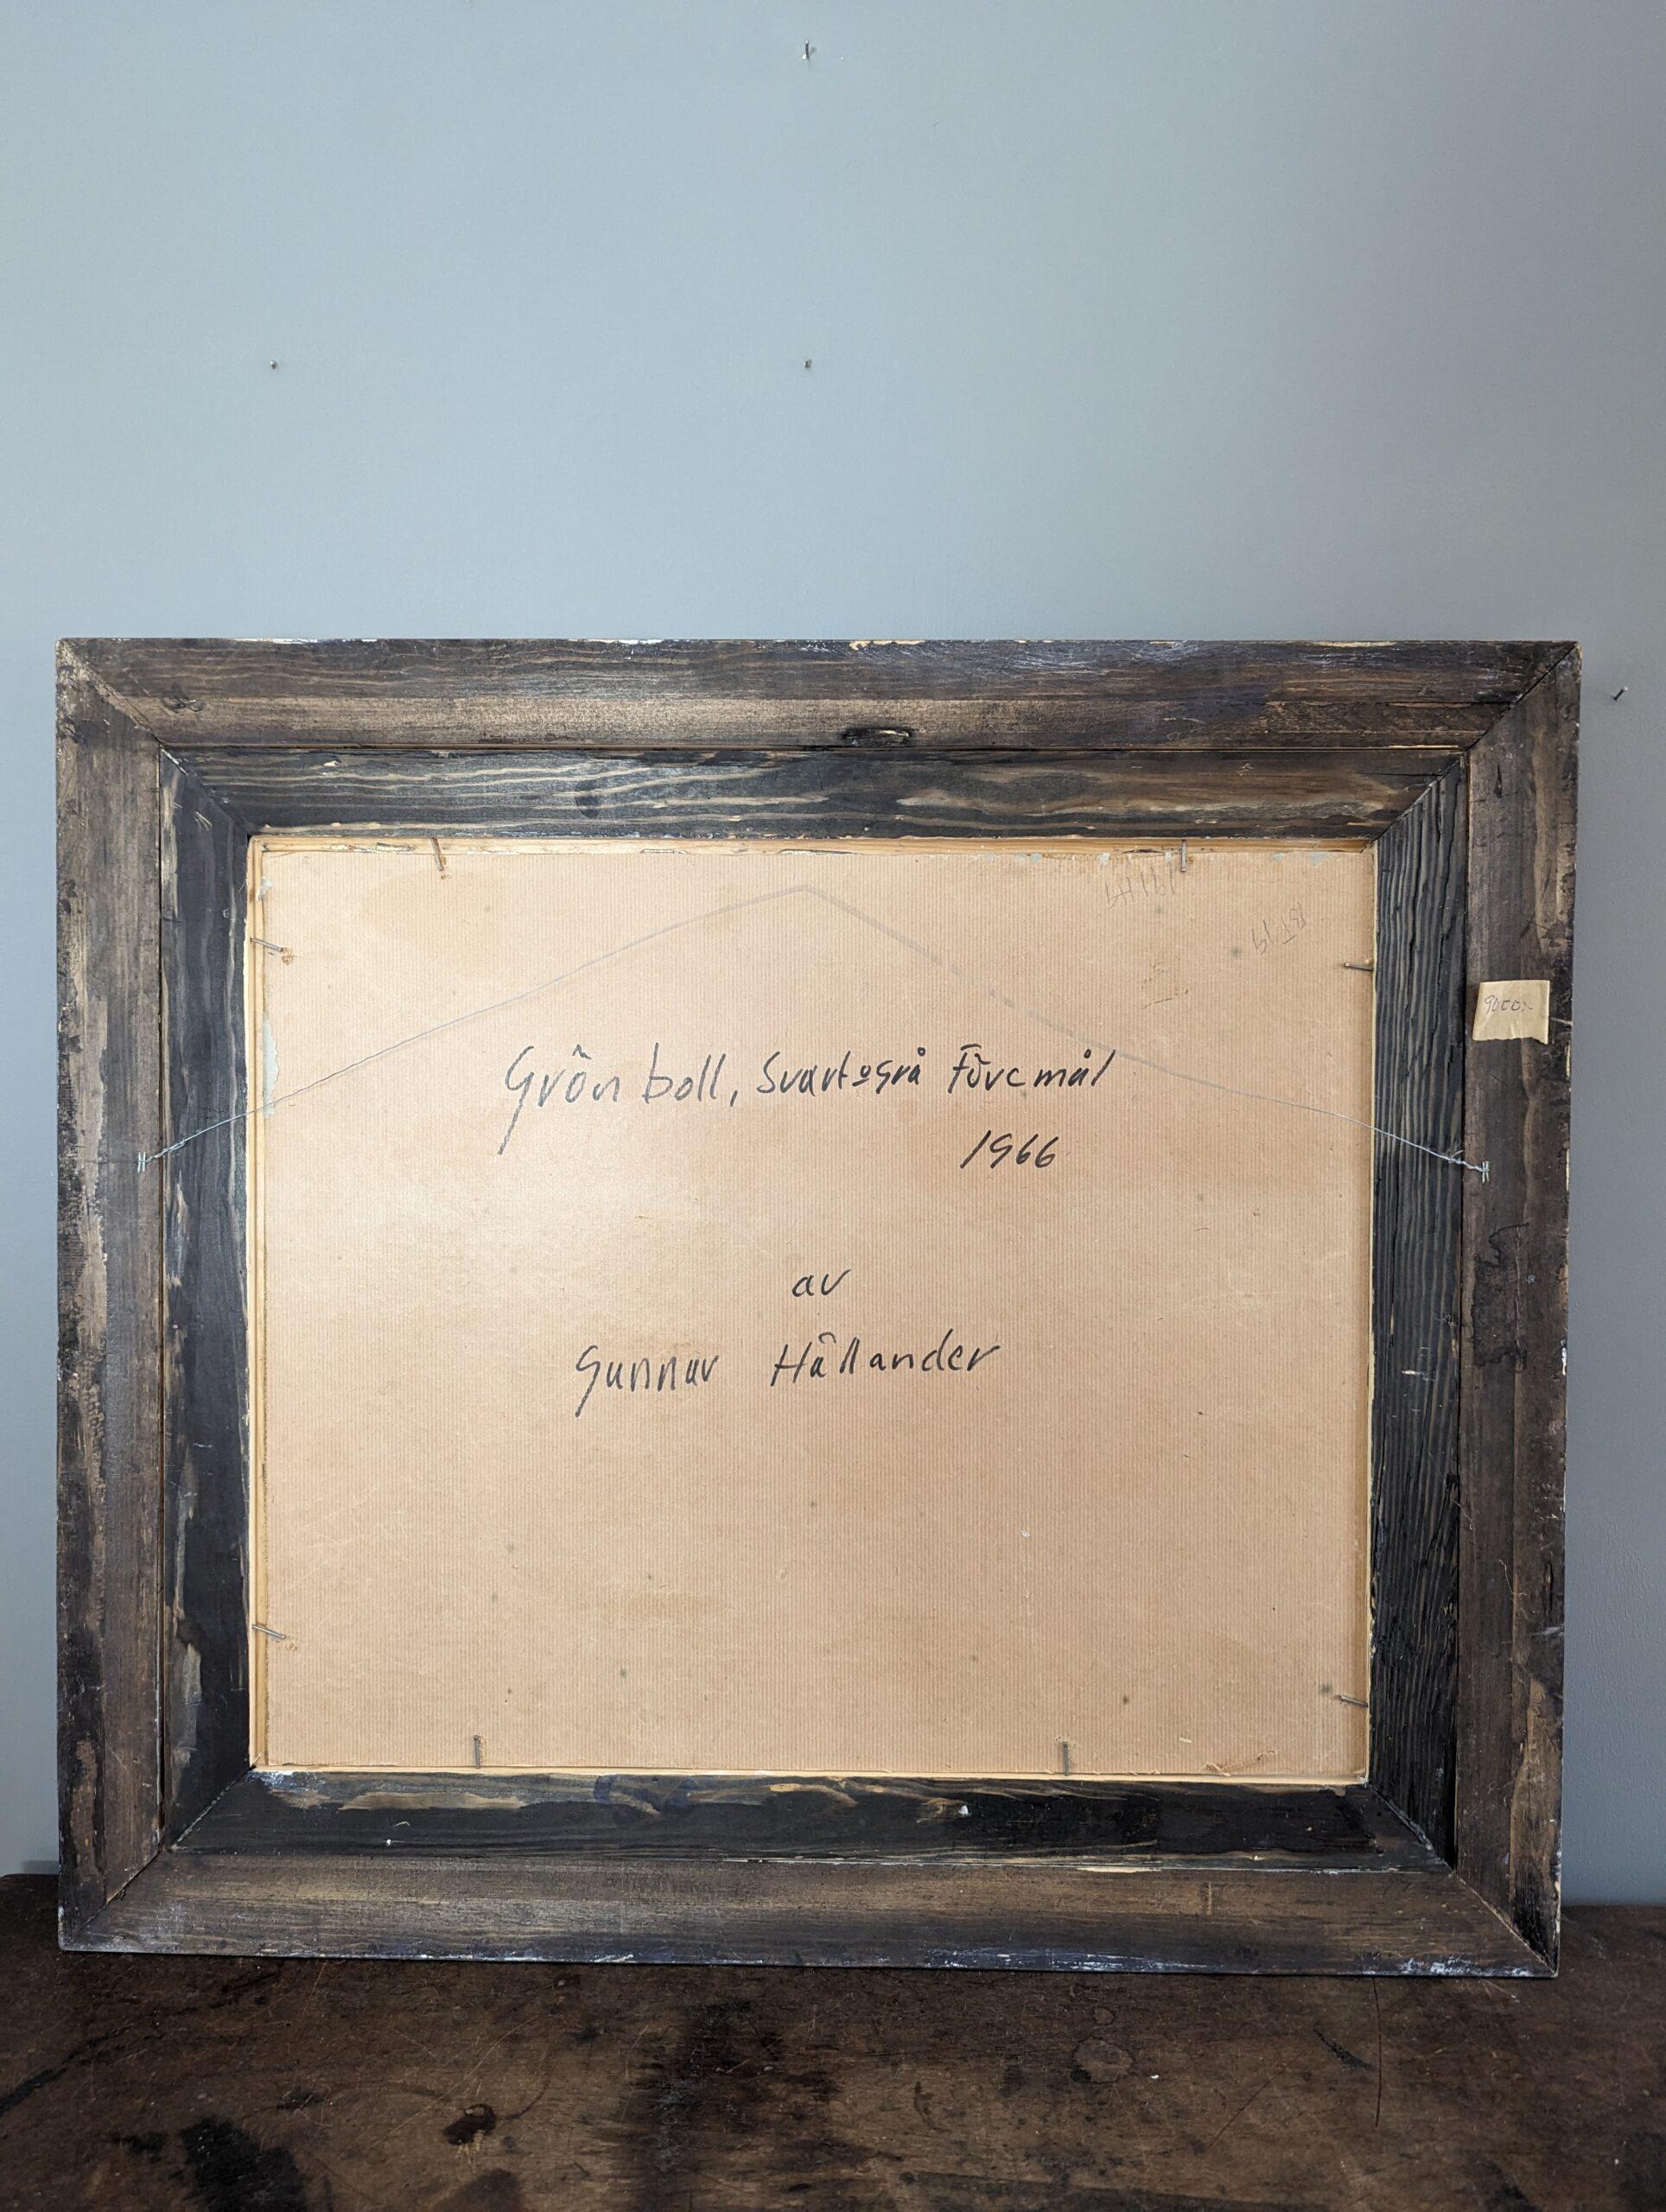 Grön boll, Svart o grå Föremål
1966
av
Gunnar Hållander
9000:-